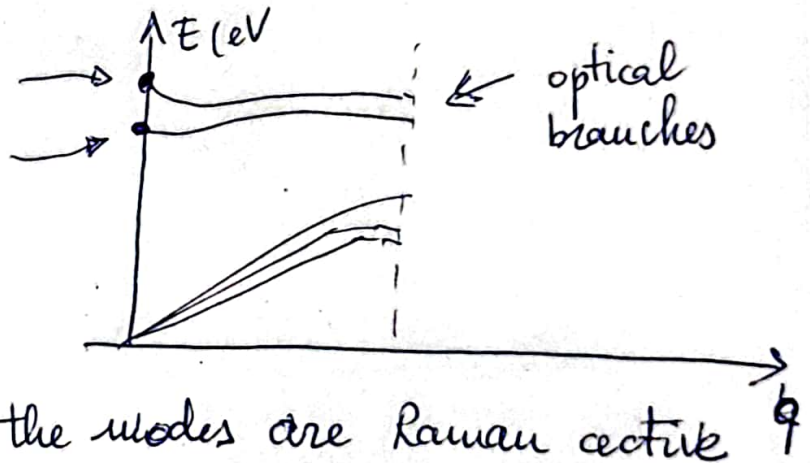 E (eV
optical
branches
the modes are Raman active
q